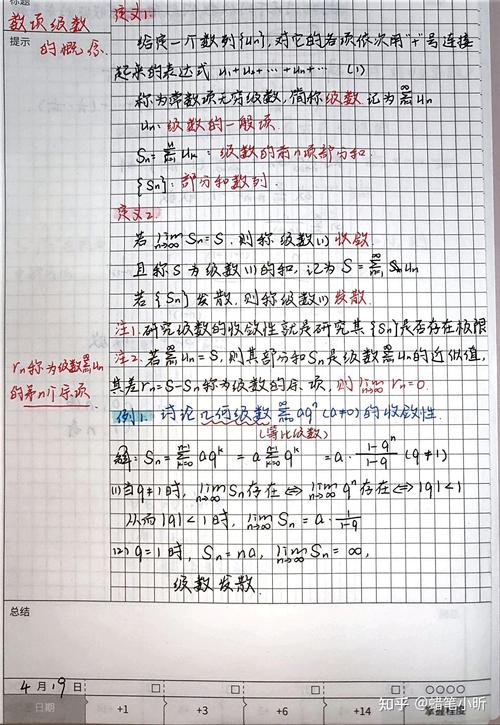 标题
数项级数
的概念
提示
定义1.
给定一个数列{un},对它的各项依次用"+"号连接
起来的表达式 u1+u2+…+un+… (1)
称为常数项无穷级数,简称级数 记为 ∞∑n=1 un
un:级数的一般项
Sn=n∑k=1 uk:级数的前n项部分和.
{Sn}:部分和数列.
定义2.
若 lim n→∞ Sn=S.则称级数(1)收敛.
且称S为级数(1)的和,记为 S=∞∑n=1 un
若{Sn}发散,则称级数(1)发散.
注1.研究级数的收敛性就是研究其{Sn}是否存在极限
注2.若∞∑n=1 un=S,则其部分和Sn是级数∞∑n=1 un的近似值,
其差rn=S-Sn称为级数的余项,则lim n→∞ rn=0.
rn称为级数∞∑n=1 un
的第n个余项
例1.讨论几何级数∞∑n=0 aqⁿ(a≠0)的收敛性.
(等比级数)
解:Sn=n-1∑k=0 aq^k = a n-1∑k=0 q^k = a·(1-qⁿ)/(1-q) (q≠1)
(1)当q≠1时, lim n→∞ Sn存在⇔lim n→∞ qⁿ存在⇔|q|<1
从而|q|<1时, lim n→∞ Sn=a·1/(1-q)
(2)q=1时, Sn=na, lim n→∞ Sn=∞,
级数发散.
总结
4月19日
日期 +1 +3 +6 +14 掌握程度
知乎 @蜡笔小昕